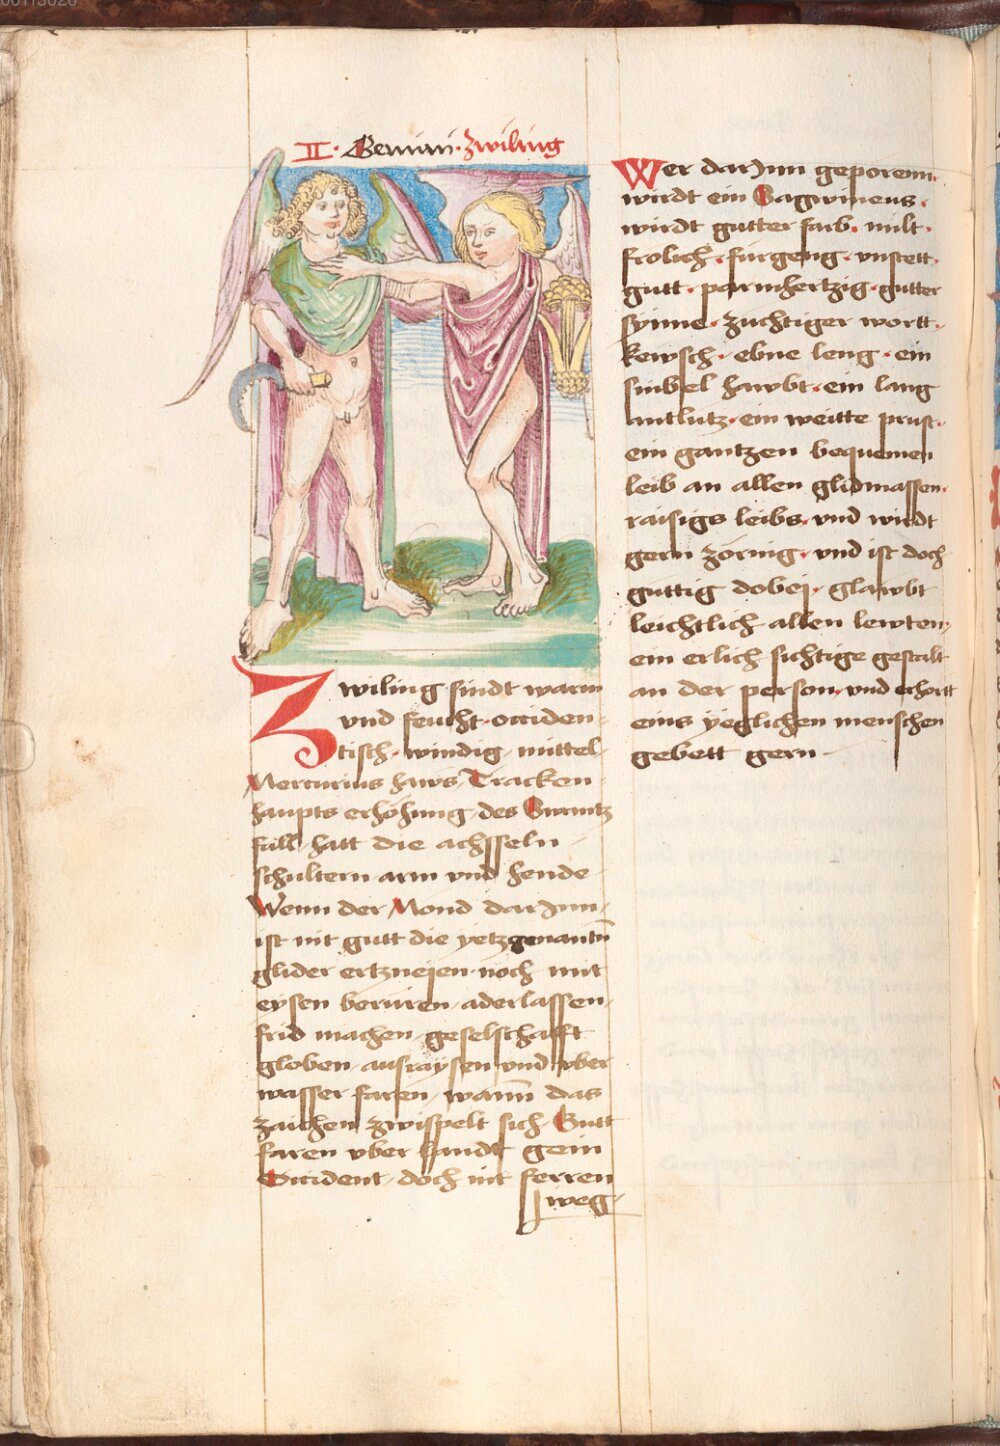 II · Gemini · Zwiling
Zwiling sindt warm
vnd feucht · occiden-
tisch · windig · mittel
Mercurius haws Tracken
haupts erhöhung · des
fall · hatt die achsseln
schultern arm vnd hende
Wenn der Mond dar Jnn
ist nit gutt die yetzgenantn
glider ertzneien noch mit
eysen berüren · aderlassen
frid machen · geselschafft
globen · ausraysen vnd vber
wasser faren · wann das
zaichen zwispelt sich · Gutt
faren vber landt gein
Occident · doch nit ferren
weg
Wer dar Jnn geporenn
wirdt ein
wirdt gutter farb · milt ·
frolich · fürgeng · vnstett ·
gutt · parmhertzig · gutter
synne · züchtiger wortt ·
kewsch · ebne leng · ein
sinbel hawbt · ein lang
antlutz · ein weitte prust ·
ein gantzen bequemen
leib an allen glidmassen
raisigs leibs · vnd wirdt
gern zörnig · vnd ist doch
guttig dobej · glawbt
leichtlich allen lewten
ein erlich sichtige gestalt
an der person · vnd erhort
eins yeglichen menschen
gebett gern